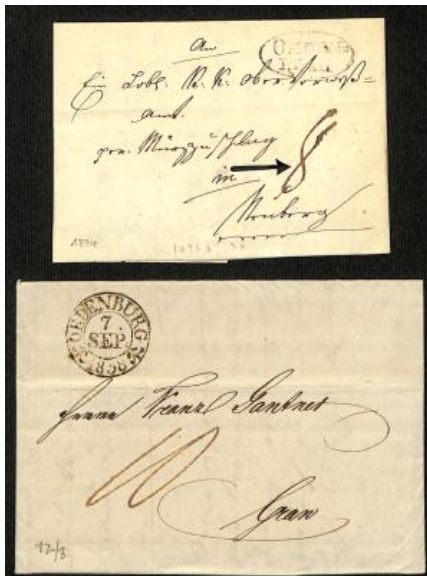 An
Ein Löbl. K. K. Oberverweß=
Amt.
per. Mürzzuschlag
in
8
Neuberg
1834
OEDENBURG
7
SEP.
1838
Herrn Franz Gantner
10
Gran
12/3